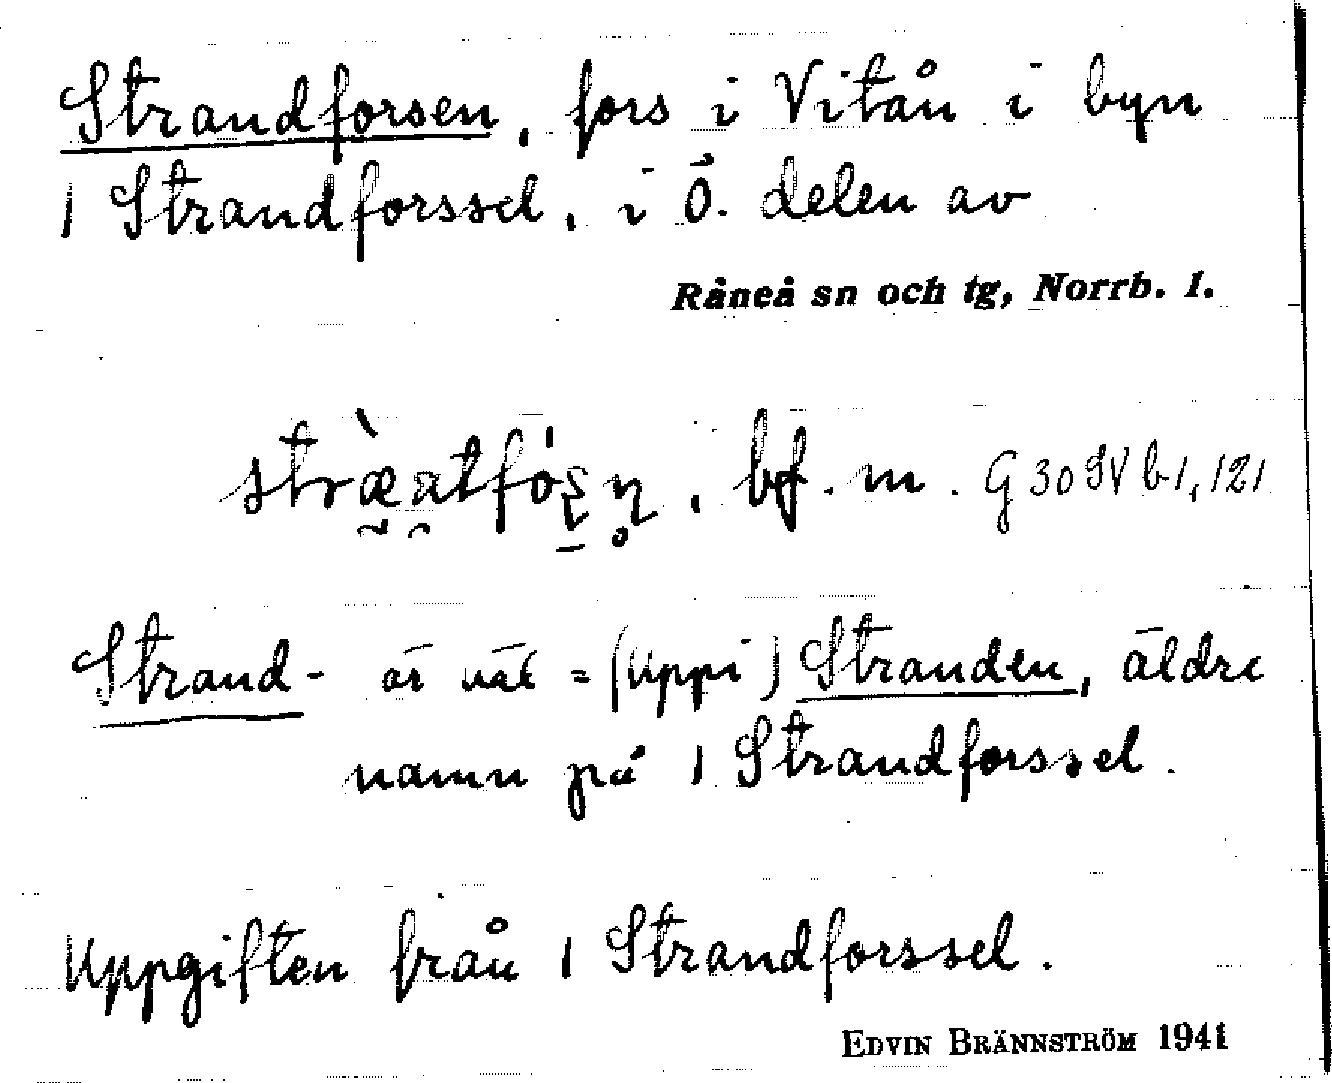 Strandforsen, fors i Vitån i byn
1 Strandforssel, i Ö. delen av
Råneå sn och tg, Norrb. l.
stræ̀ατfǫ́ṣṇ, bf. m. G 30 SV b 1, 121
Strand- är väl = (Uppi) Stranden, äldre
namn på 1 Strandforssel.
Uppgiften från 1 Strandforssel.
EDVIN BRÄNNSTRÖM 1941